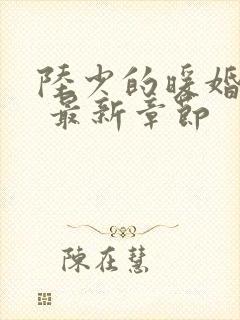 陸少的暖婚
最新章節
陳在慧